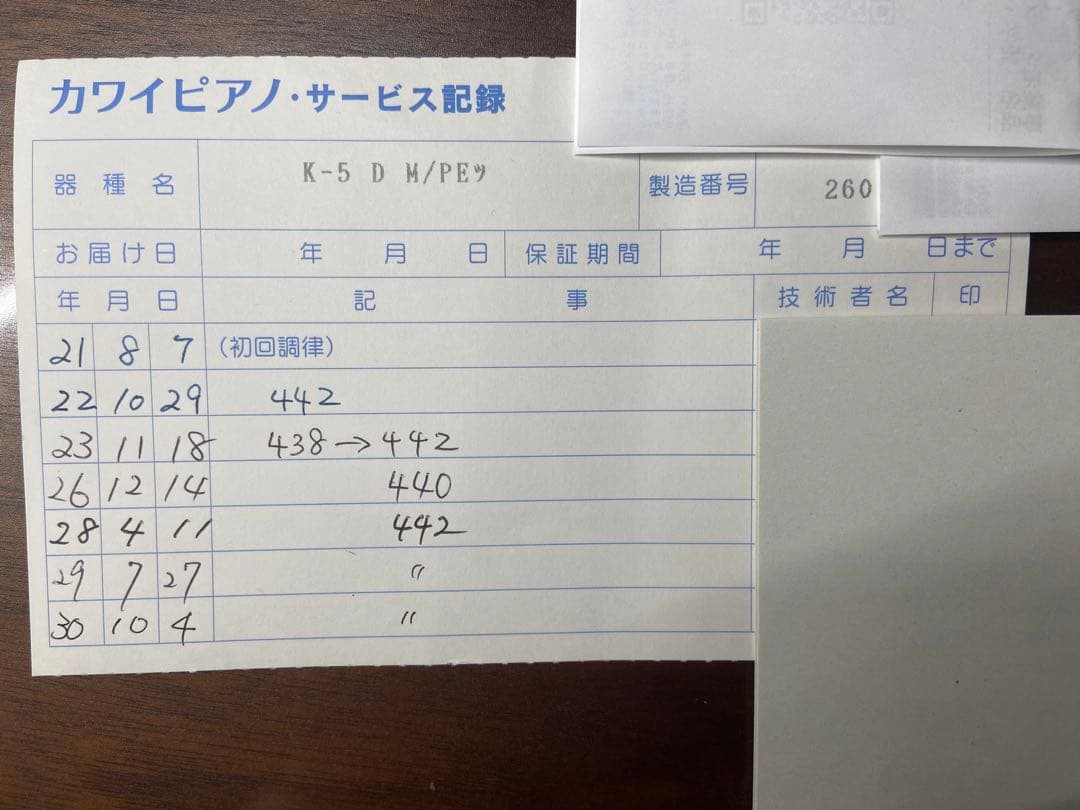 カワイピアノ・サービス記録
器種名 K-5 D M/PEツ 製造番号 260
お届け日 年 月 日 保証期間 年 月 日まで
年 月 日 記 事 技術者名 印
21 8 7 (初回調律)
22 10 29 442
23 11 18 438→442
26 12 14 440
28 4 11 442
29 7 27 〃
30 10 4 〃